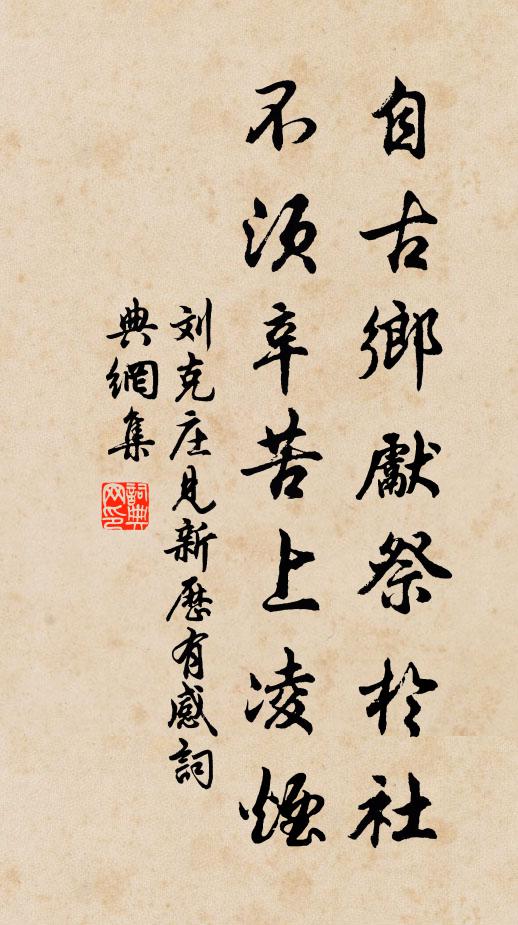 自古鄉獻祭於社
不須辛苦上凌煙
刘克庄見新歷有感詞
典網集
詞典网印